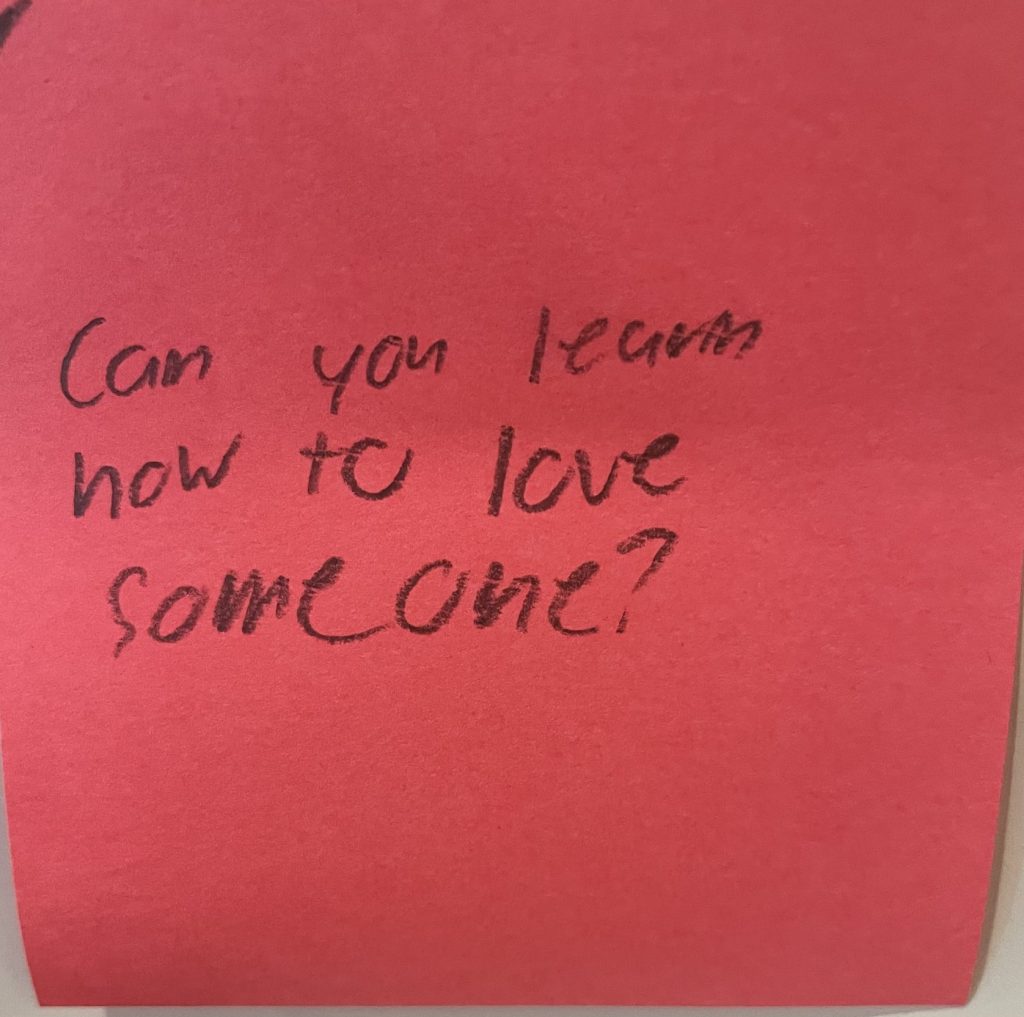 Can you learn
how to love
someone?